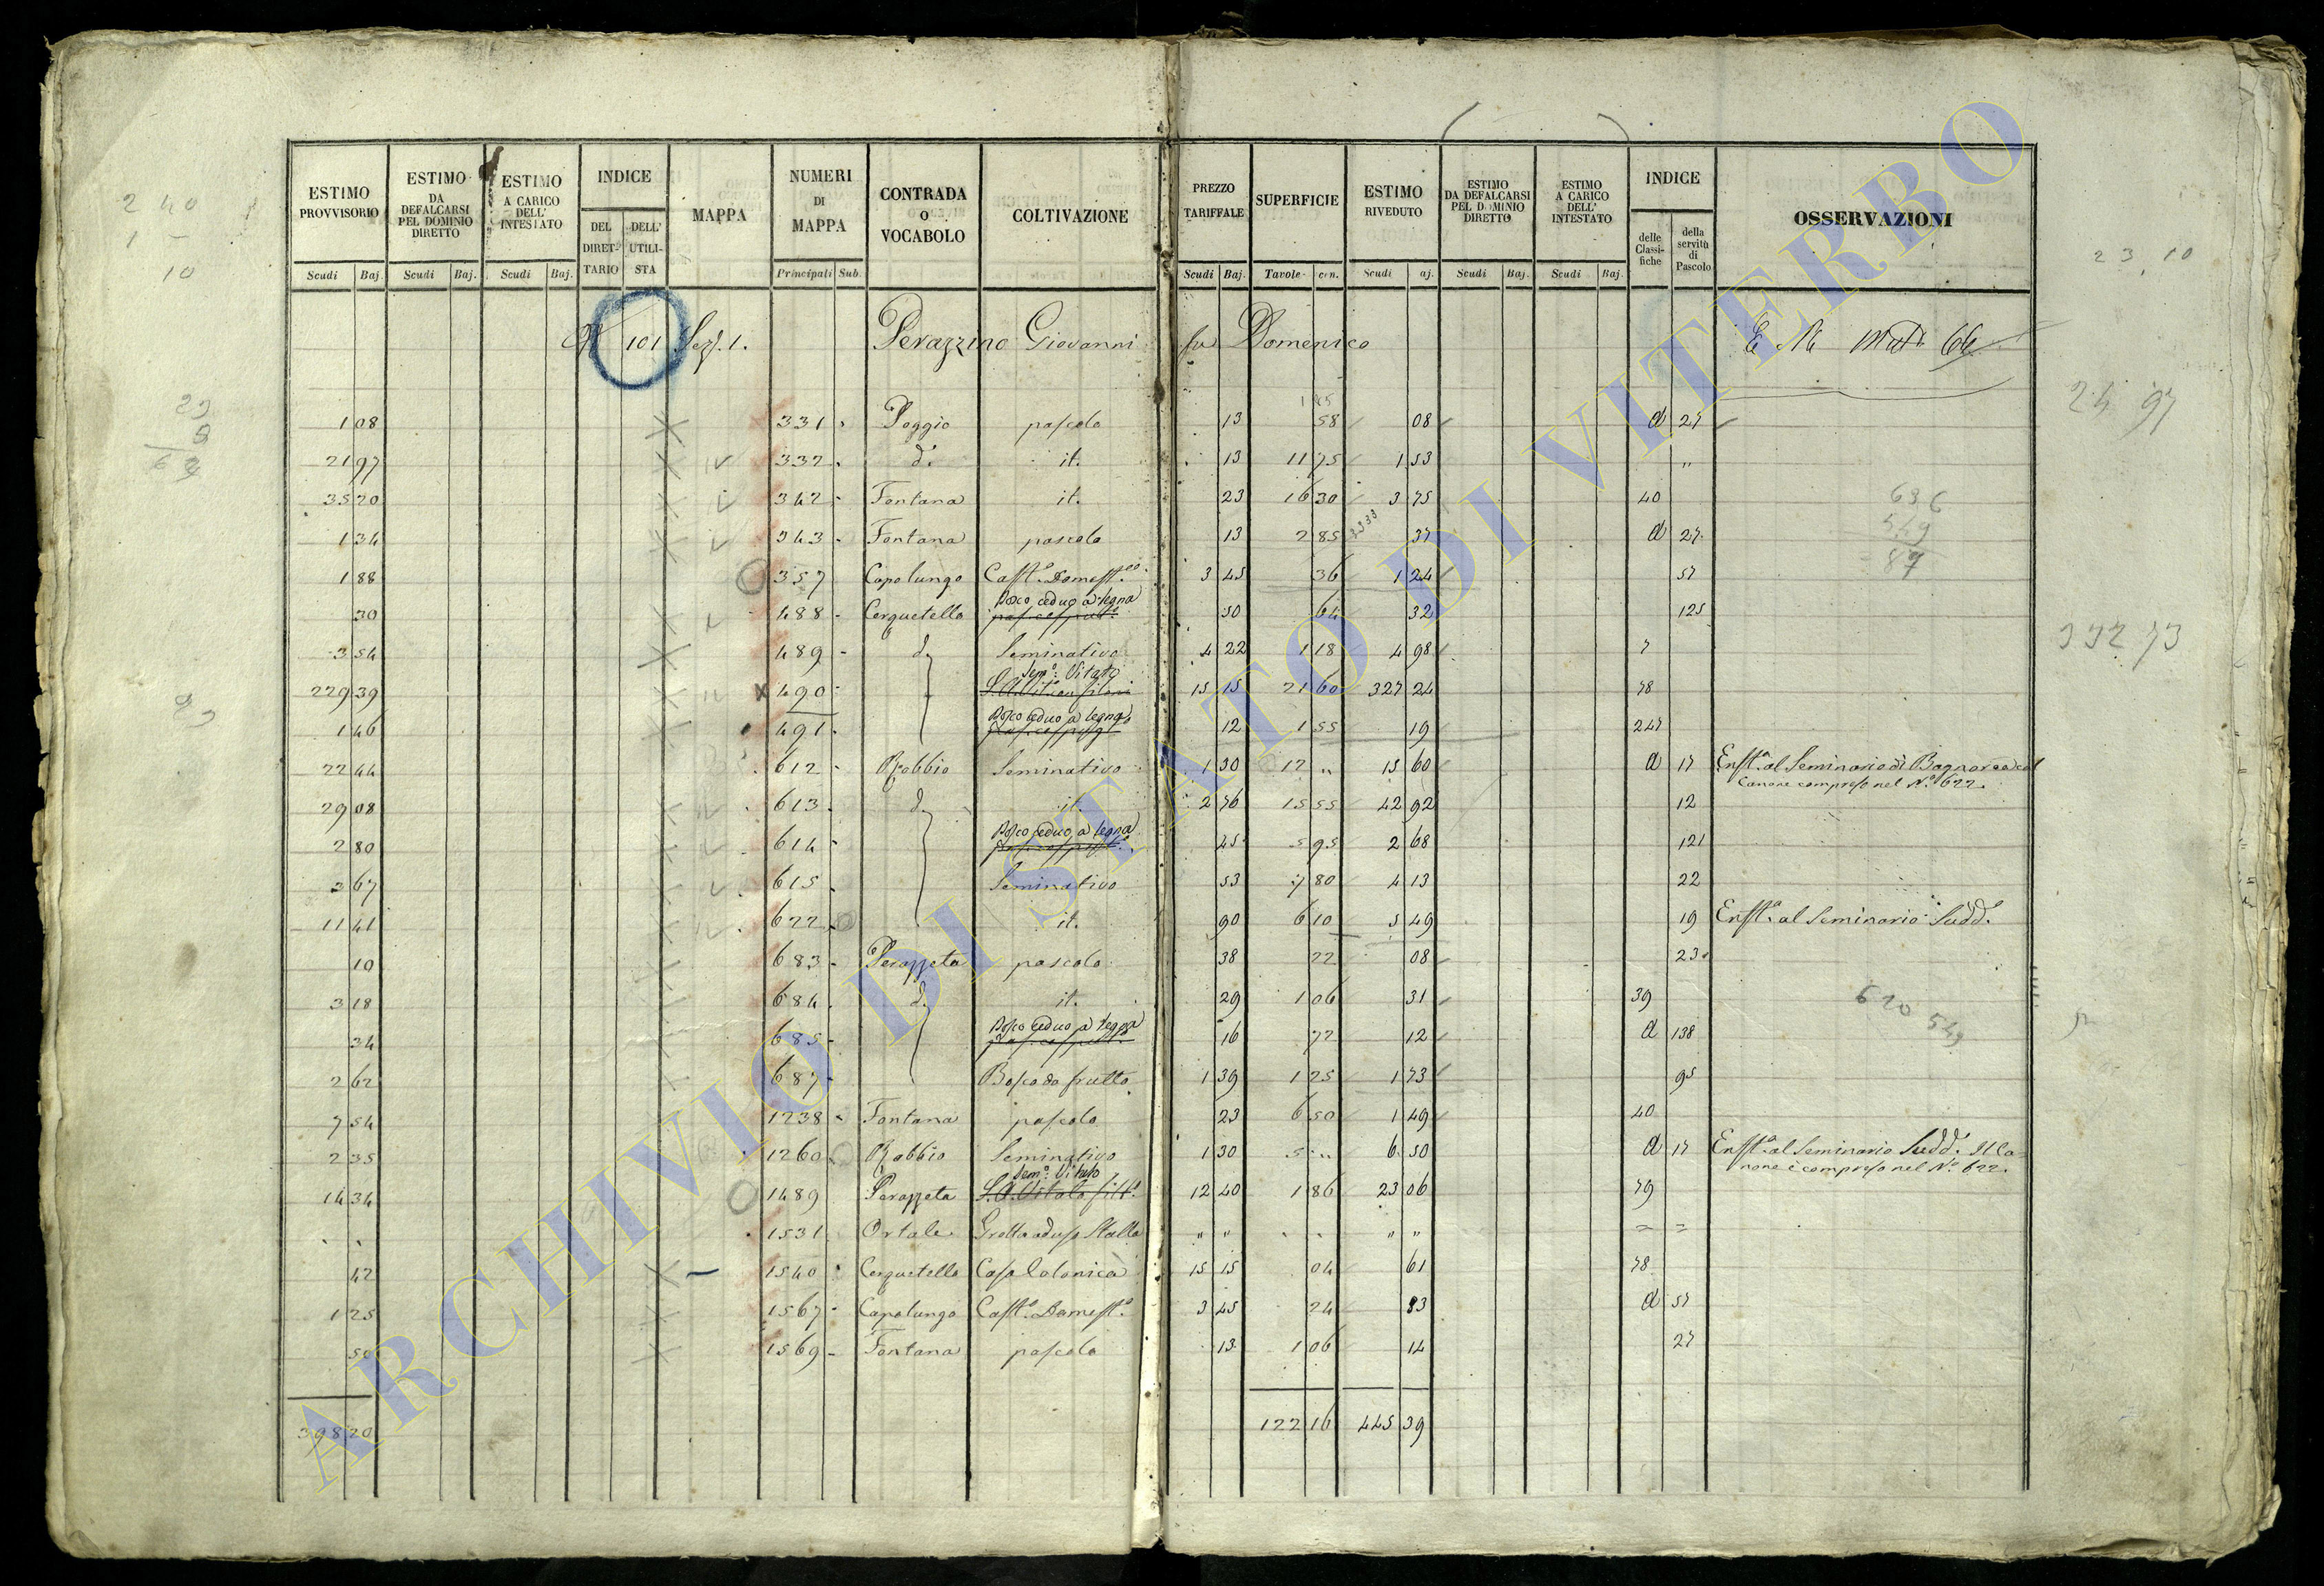 ESTIMO PROVVISORIO
ESTIMO DA DEFALCARSI PEL DOMINIO DIRETTO
ESTIMO A CARICO DELL' INTESTATO
INDICE
DEL DIRETTARIO
DELL' UTILISTA
MAPPA
NUMERI DI MAPPA
CONTRADA O VOCABOLO
COLTIVAZIONE
PREZZO TARIFFALE
SUPERFICIE
ESTIMO RIVEDUTO
ESTIMO DA DEFALCARSI PEL DOMINIO DIRETTO
ESTIMO A CARICO DELL' INTESTATO
INDICE
delle Classifiche
della servitù di Pascolo
OSSERVAZIONI
Scudi Baj. Scudi Baj. Scudi Baj. Principali Sub. Scudi Baj. Tavole cen. Scudi aj. Scudi Baj. Scudi Baj.
101 Sez. 1. Perazzino Giovanni fu Domenico
1 08 331 Poggio pascolo 13 58 08 d 27
21 97 332 d.º it. 13 11 75 1 53 "
35 20 342 Fontana it. 23 16 30 3 75 40
1 34 343 Fontana pascolo 13 2 85 37 d 27
1 88 357 Capolungo Cast.º Domest.co 3 45 36 1 24 57
30 488 Cerquetello Bosco ceduo a legna 50 64 32 125
3 54 489 d. Seminativo 4 22 1 18 4 98 7
229 39 490 Sem.º Vitato 15 15 21 60 327 24 78
1 46 491 Bosco ceduo a legna 12 1 55 19 247
22 44 612 Rabbio Seminativo 1 30 12 " 15 60 d 17 Enft.º al Seminario di Bagnorea col
Canone compreso nel N.º 622.
29 08 613 d. it. 2 76 15 55 42 92 12
2 80 614 Bosco ceduo a legna 45 5 95 2 68 121
3 67 615 Seminativo 53 7 80 4 13 22
11 41 622 it. 90 6 10 5 49 19 Enft.º al Seminario Sudd.º
10 683 Perazzeta pascolo 38 22 08 23
3 18 684 d. it. 29 1 06 31 39
34 685 Bosco ceduo a legna 16 72 12 d 138
2 62 687 Bosco da frutto 1 39 1 25 1 73 95
7 54 1238 Fontana pascolo 23 6 50 1 49 40
2 35 1260 Rabbio Seminativo 1 30 5 " 6 50 d 17 Enft.º al Seminario Sudd.º Il Ca
none è compreso nel N.º 622.
14 34 1489 Perazzeta Sem.º Vitato 12 40 1 86 23 06 79
1531 Ortale Grotta ad uso Stalla " " " "
42 1540 Cerquetello Casa Colonica 15 15 04 61 78
1 25 1567 Capolungo Cast.º Domest.º 3 45 24 83 d 57
1569 Fontana pascolo 13 1 06 14 27
398 20 122 16 445 39
2 40
10
23.10
24 97
636
549
87
332 73
610 549
ARCHIVIO DI STATO DI VITERBO